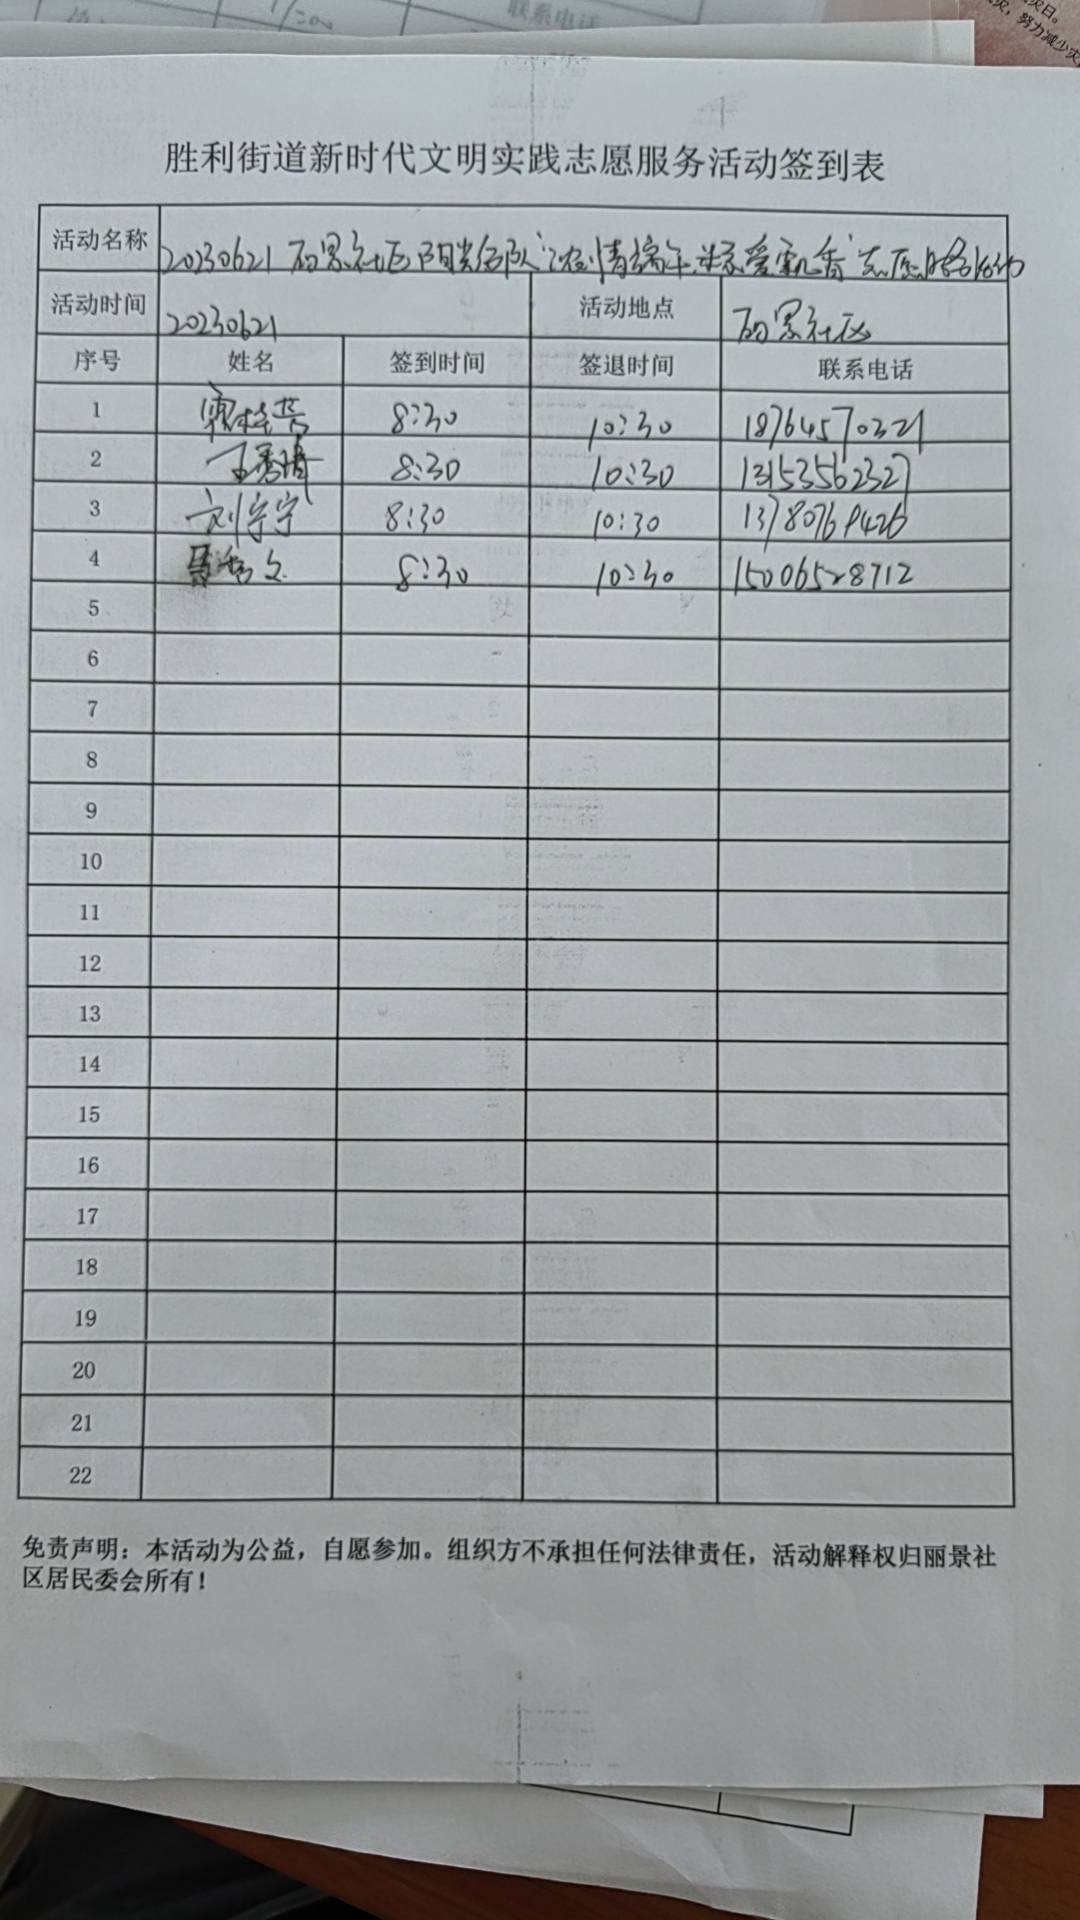 联系电话
灾日。
灾，努力减少灾
胜利街道新时代文明实践志愿服务活动签到表
活动名称 20230621 丽景社区阳光 队"浓情端午.粽爱飘香"志愿服务活动
活动时间 20230621 活动地点 丽景社区
序号 姓名 签到时间 签退时间 联系电话
1 8:30 10:30 18764570321
2 王秀 8:30 10:30 13153562327
3 刘宁宁 8:30 10:30 13780769426
4 文 8:30 10:30 15006528712
5
6
7
8
9
10
11
12
13
14
15
16
17
18
19
20
21
22
免责声明：本活动为公益，自愿参加。组织方不承担任何法律责任，活动解释权归丽景社
区居民委会所有！